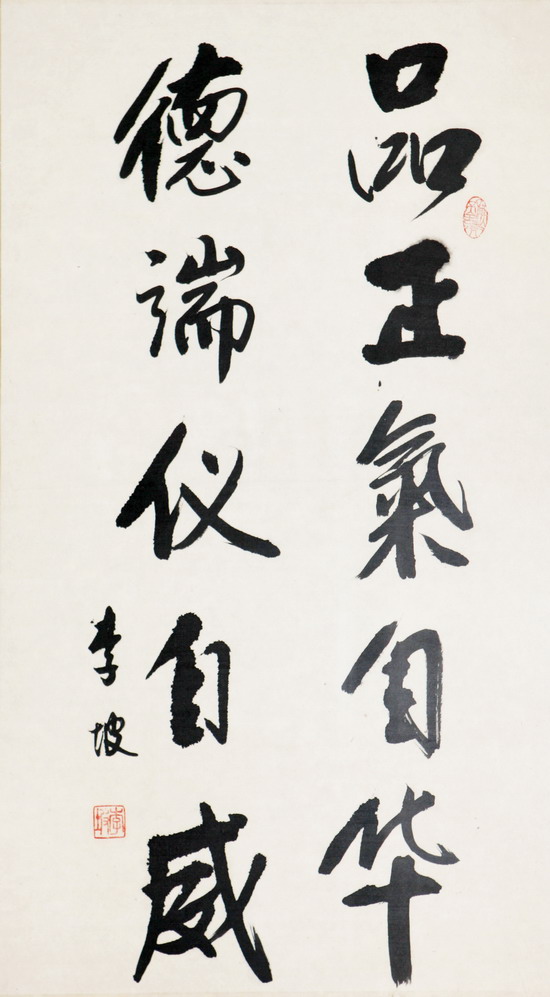 品正氣自华
德端仪自威
李坡